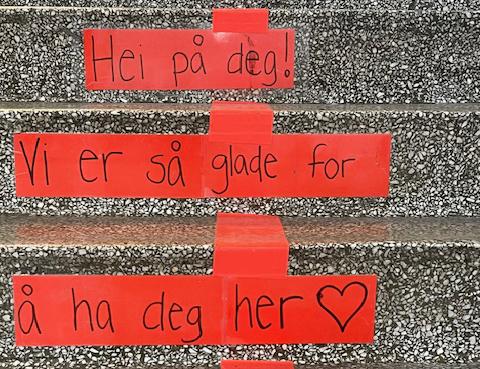 Hei på deg!
Vi er så glade for
å ha deg her ♡